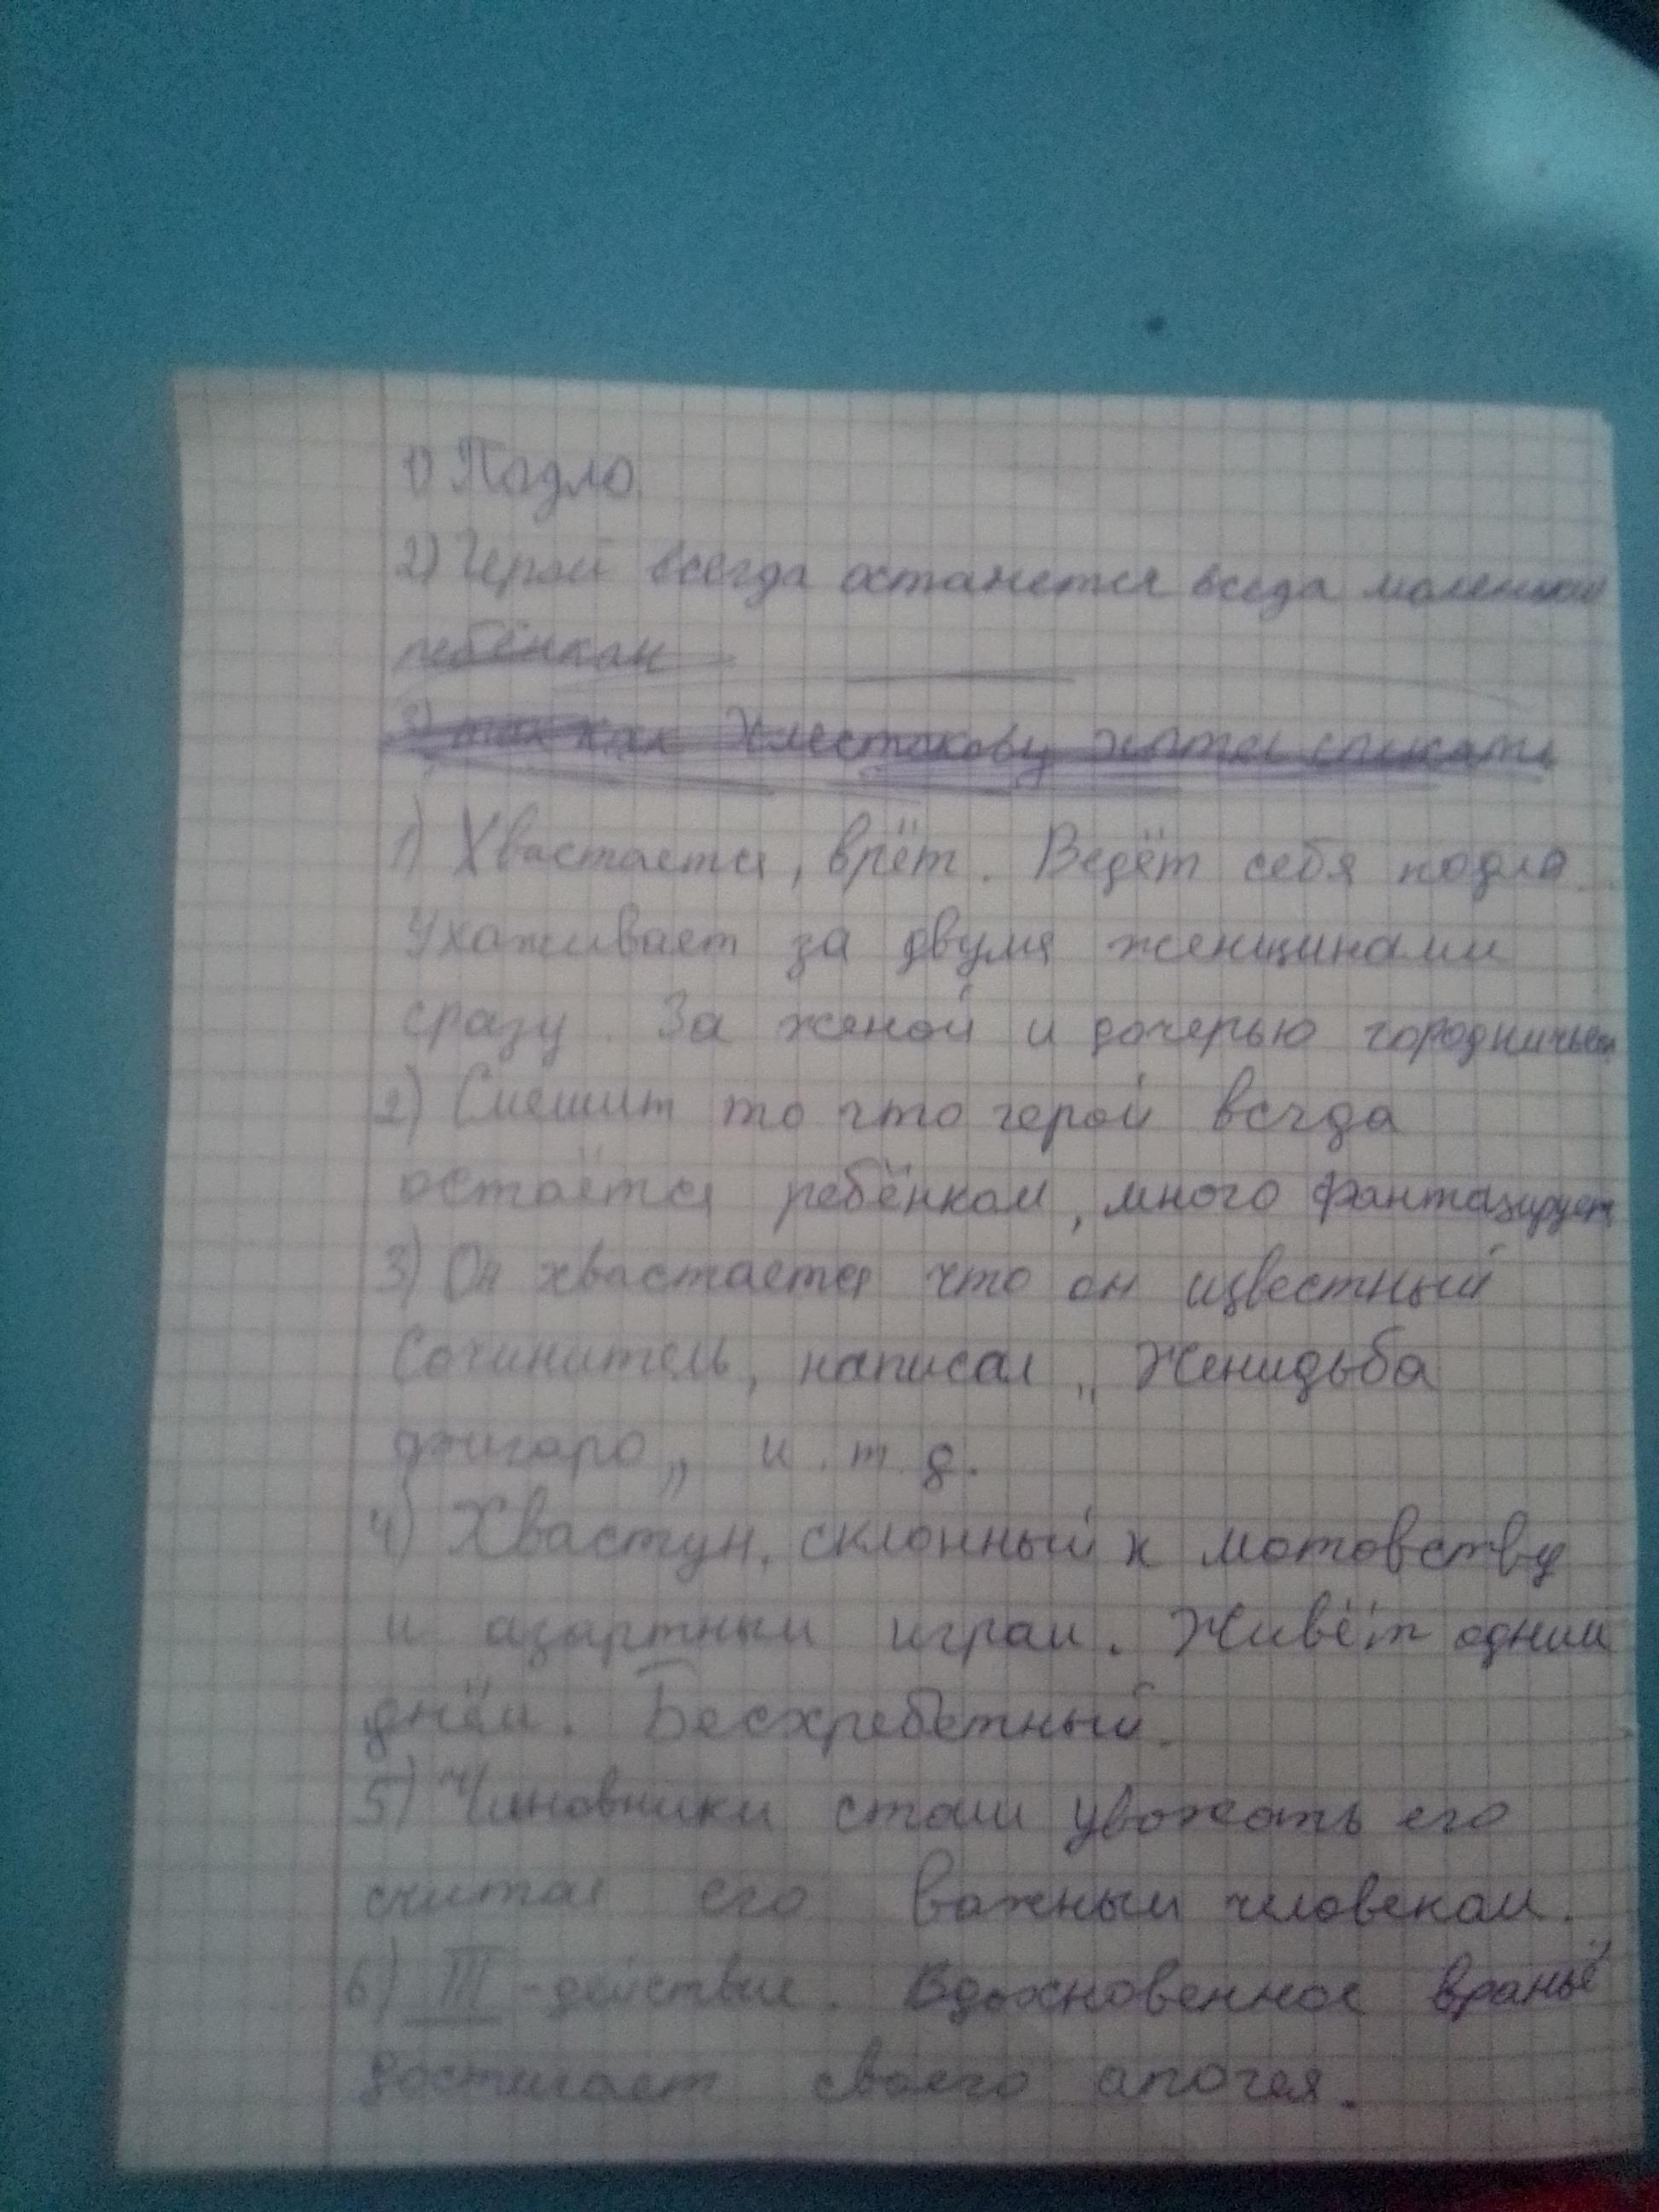 1) Подло
2) Герой всегда останется вседа маленьким
ребёнкам
Хлестакову
1) Хвастается, врёт. Ведёт себя подло.
Ухаживает за двумя женщинами
сразу. За женой и дочерью городничьего
2) Смешит то что герой всгда
остаётся ребёнком, много фантазирует
3) Он хвастается что он известный
Сочинитель, написал „ Женидьба
фигаро„ и. т. д.
4) Хвастун, склонный к мотовству
и азартным играм. Живёт одним
днём. Бесхребетный.
5) Чиновники стали уважать его
считая его важным человеком.
6) III - действие. Вдохновенное враньё
достигает своего апогея.